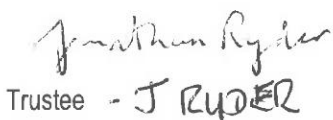 Jonathan Ryder
Trustee - J RYDER